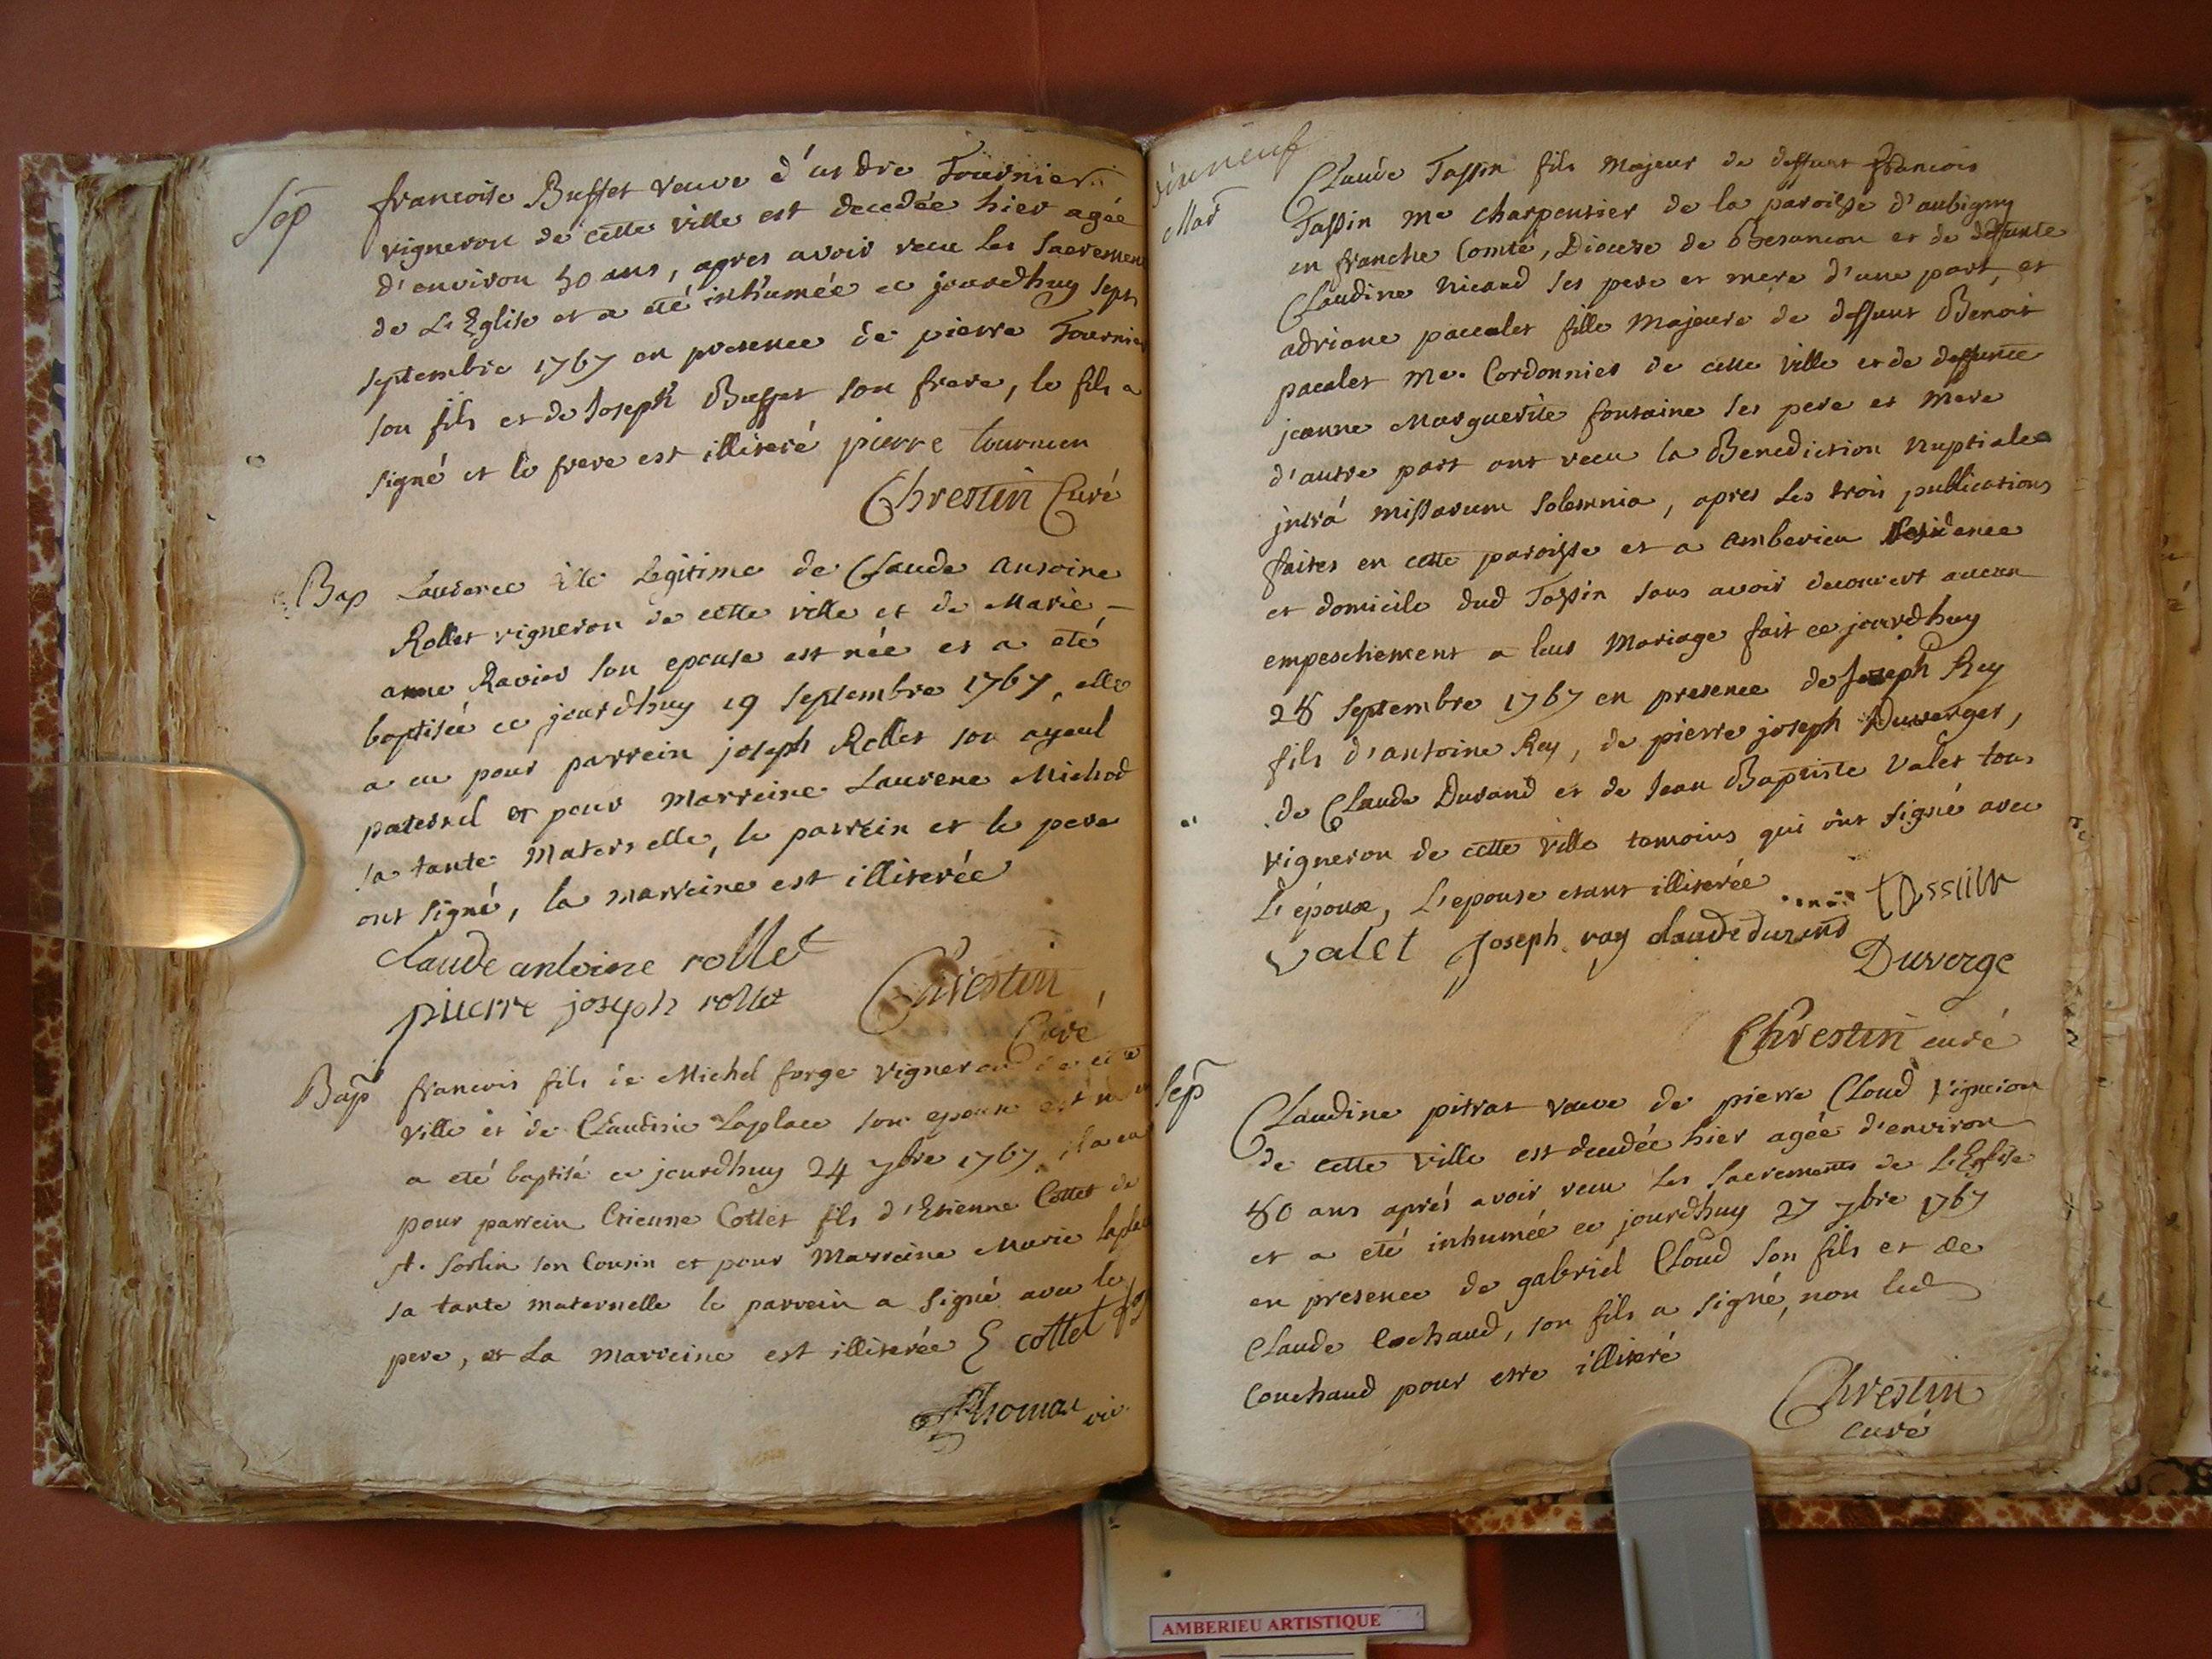 Sep
francoise Buffet veuve d'andre Tournier
vigneron de cette ville est decedée hier agée
d'environ 50 ans, apres avoir recu les Sacremens
de L'Eglise et a eté inhumée ce jourdhuy sept
septembre 1767 en presence de pierre Tournier
son fils et de Joseph Buffet son frere, le fils a
signé et le frere est illiteré pierre tournier
Chrestin Curé
Bap
Laurence fille Legitime de Claude antoine
Rollet vigneron de cette ville et de Marie-
anne Ravier son epouse est née et a eté
baptisée ce jourdhuy 19 septembre 1767, elle
a eu pour parrein joseph Rollet son ayeul
paternel et pour Marreine Laurence Michod
sa tante Maternelle, le parrein et le pere
ont signé, la marreine est illiterée
claude antoine rollet
pierre joseph rollet
Chrestin
Curé
Bap
francois fils de Michel forge vigneron de cette
ville et de Claudine Laplace son epouse est né et
a eté baptisé ce jourdhuy 24 7bre 1767 il a eu
pour parrein Etienne Cottet fils d'Etienne Cottet de
st. Sorlin son Cousin et pour Marreine Marie laplace
sa tante maternelle le parrein a signé avec le
pere, et La marreine est illiterée E cottet
Thomas vic.
Mar
Claude Tassin fils Majeur de deffunt francois
Tassin Me charpentier de la paroisse d'aubigny
en franche Comté, Diocese de Besancon et de deffunte
Claudine Nicaud ses pere et mere d'une part, et
adriane paccalet fille Majeure de deffunt Benoit
pacalet Me. Cordonnier de cette ville et de deffunte
jeanne Marguerite fontaine ses pere et Mere
d'autre part ont recu la Benediction Nuptiale
jntrà missarum solemnia, apres les trois publications
faites en cette paroisse et a amberieu Residence
et domicile dud Tassin sans avoir decouvert aucun
empeschement a leur Mariage fait ce jourdhuy
28 septembre 1767 en presence de Joseph Rey
fils d'antoine Rey, de pierre joseph Duverger,
de Claude Durand et de Jean Baptiste Valet tous
vigneron de cette ville temoins qui ont signé avec
L'époux, L'epouse etant illiterée
valet joseph ray claude durand
Duverge
Chrestin curé
Sep
Claudine pitrat veuve de pierre Cloud vigneron
de cette ville est decedée hier agée d'environ
80 ans aprés avoir recu les sacrements de L'Eglise
et a eté inhumée ce jourdhuy 27 7bre 1767
en presence de gabriel Cloud son fils et de
Claude Cochaud, son fils a signé, non led
Couchaud pour etre illiteré
Chrestin
curé
AMBERIEU ARTISTIQUE